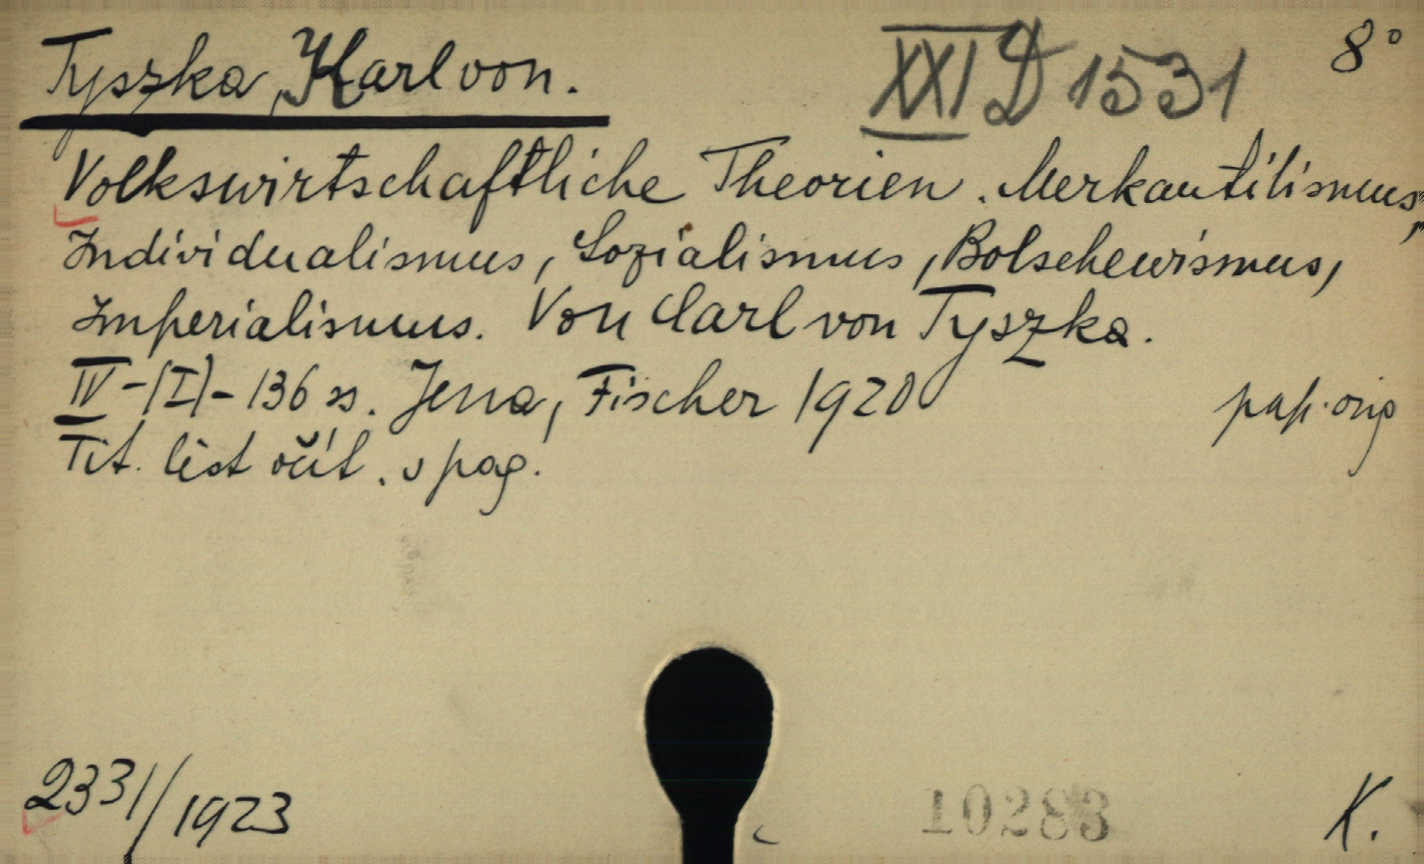 Tyszka, Karl von.
XXI D 1531
8°
Volkswirtschaftliche Theorien. Merkantilismus,
Individualismus, Sozialismus, Bolschewismus,
Imperialismus. Von Carl von Tyszka.
IV-(I)-136 ss. Jena, Fischer 1920
pap. orig
Tit. list očít. v pag.
2331/1923
10283
K.